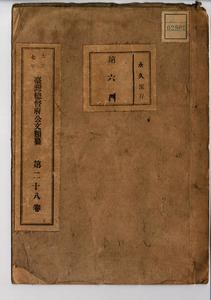 永久保存
第六門
大正七年
臺灣總督府公文類纂 第二十八卷